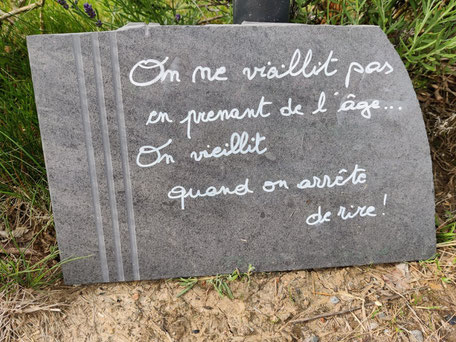 On ne viallit pas
en prenant de l'âge...
On vieillit
quand on arrête
de rire!